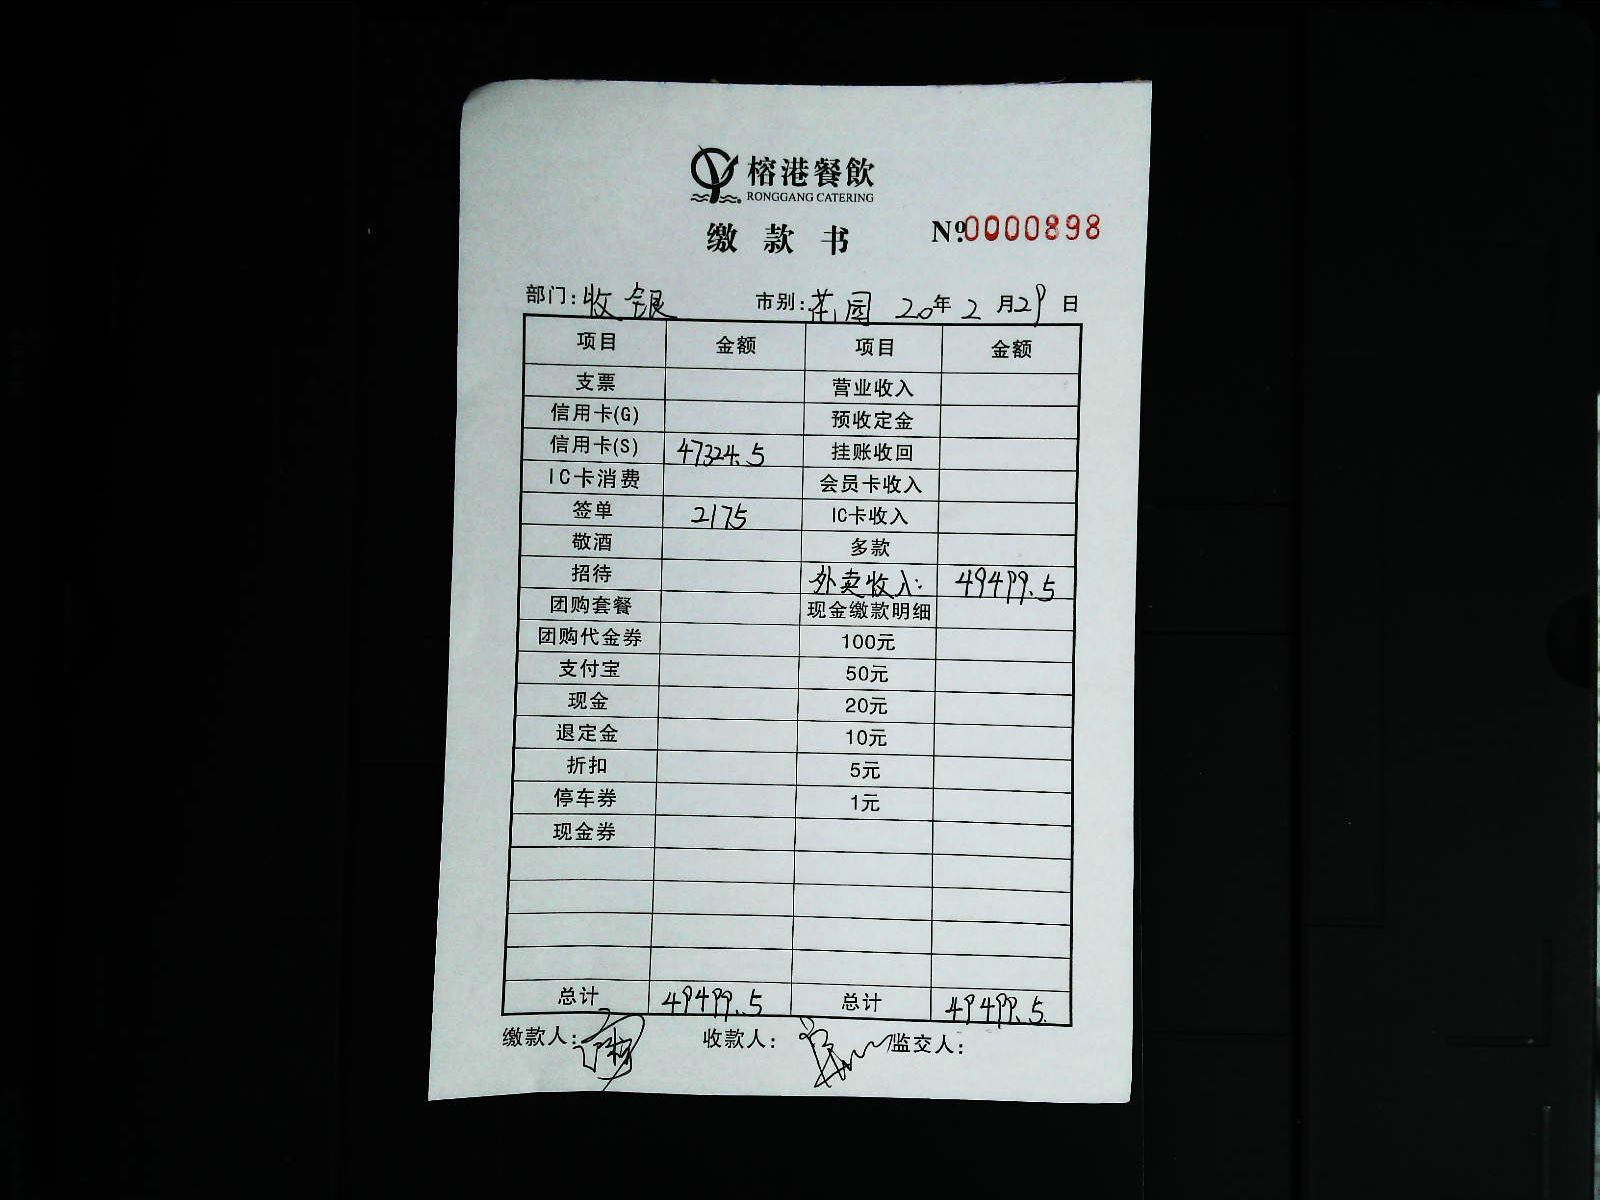 榕港餐飲
RONGGANG CATERING
缴款书 Nº.0000898
部门:收银 市别:花园 20年2月29日
项目 金额 项目 金额
支票 营业收入
信用卡(G) 预收定金
信用卡(S) 47324.5 挂账收回
IC卡消费 会员卡收入
签单 2175 IC卡收入
敬酒 多款
招待 外卖收入: 49499.5
团购套餐 现金缴款明细
团购代金券 100元
支付宝 50元
现金 20元
退定金 10元
折扣 5元
停车券 1元
现金券
总计 49499.5 总计 49499.5
缴款人: 收款人: 监交人: